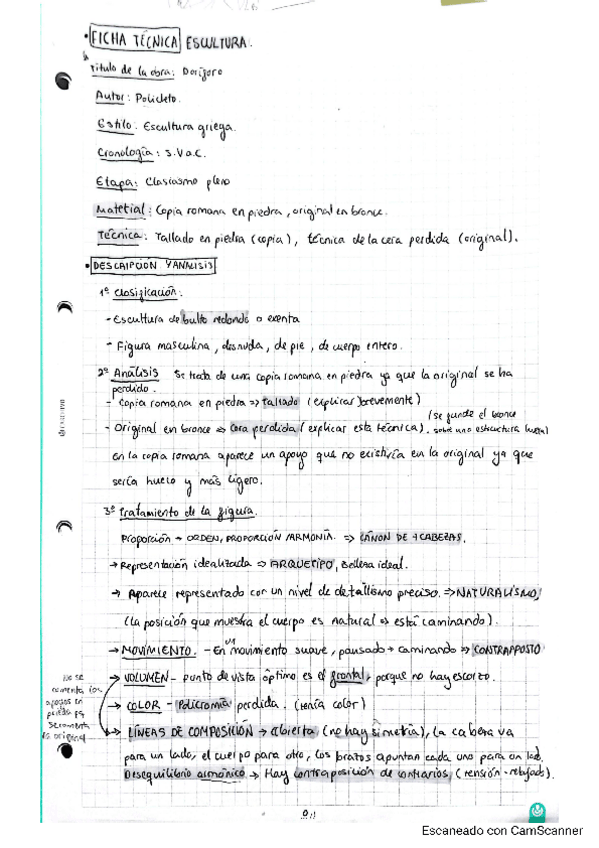 • FICHA TÉCNICA ESCULTURA.
Título de la obra: Doríforo
Autor: Policleto.
Estilo: Escultura griega.
Cronología: S.V a.C.
Etapa: Clasicismo pleno
Material: Copia romana en piedra, original en bronce.
Técnica: Tallado en piedra (copia), técnica de la cera perdida (original).
• DESCRIPCIÓN Y ANÁLISIS
1º Clasificación:
- Escultura de bulto redondo o exenta
- Figura masculina, desnuda, de pie, de cuerpo entero.
2º Análisis Se trata de una copia romana en piedra ya que la original se ha
perdido.
- Copia romana en piedra => Tallado (explicar brevemente)
(se funde el bronce
- Original en bronce => Cera perdida (explicar esta técnica). sobre una estructura hueca)
En la copia romana aparece un apoyo que no existiría en la original ya que
sería hueco y más ligero.
3º Tratamiento de la figura.
Proporción → ORDEN, PROPORCIÓN Y ARMONÍA. => CANON DE 7 CABEZAS.
→ Representación idealizada => ARQUETIPO, Belleza ideal.
→ Aparece representado con un nivel de detallismo preciso. => NATURALISMO,
(la posición que muestra el cuerpo es natural => está caminando).
→ MOVIMIENTO. - En un movimiento suave, pausado → caminando => CONTRAPPOSTO
→ VOLUMEN - punto de vista óptimo es el frontal, porque no hay escorzo.
→ COLOR - Policromía perdida. (tenía color)
→ LÍNEAS DE COMPOSICIÓN → abierta (no hay simetría), la cabeza va
para un lado, el cuerpo para otro, los brazos apuntan cada uno para un lado.
Desequilibrio armónico → Hay contraposición de contrarios (tensión - relajado).
No se
comenta los
apoyos en
piedra pq
se comenta
la original
Escaneado con CamScanner